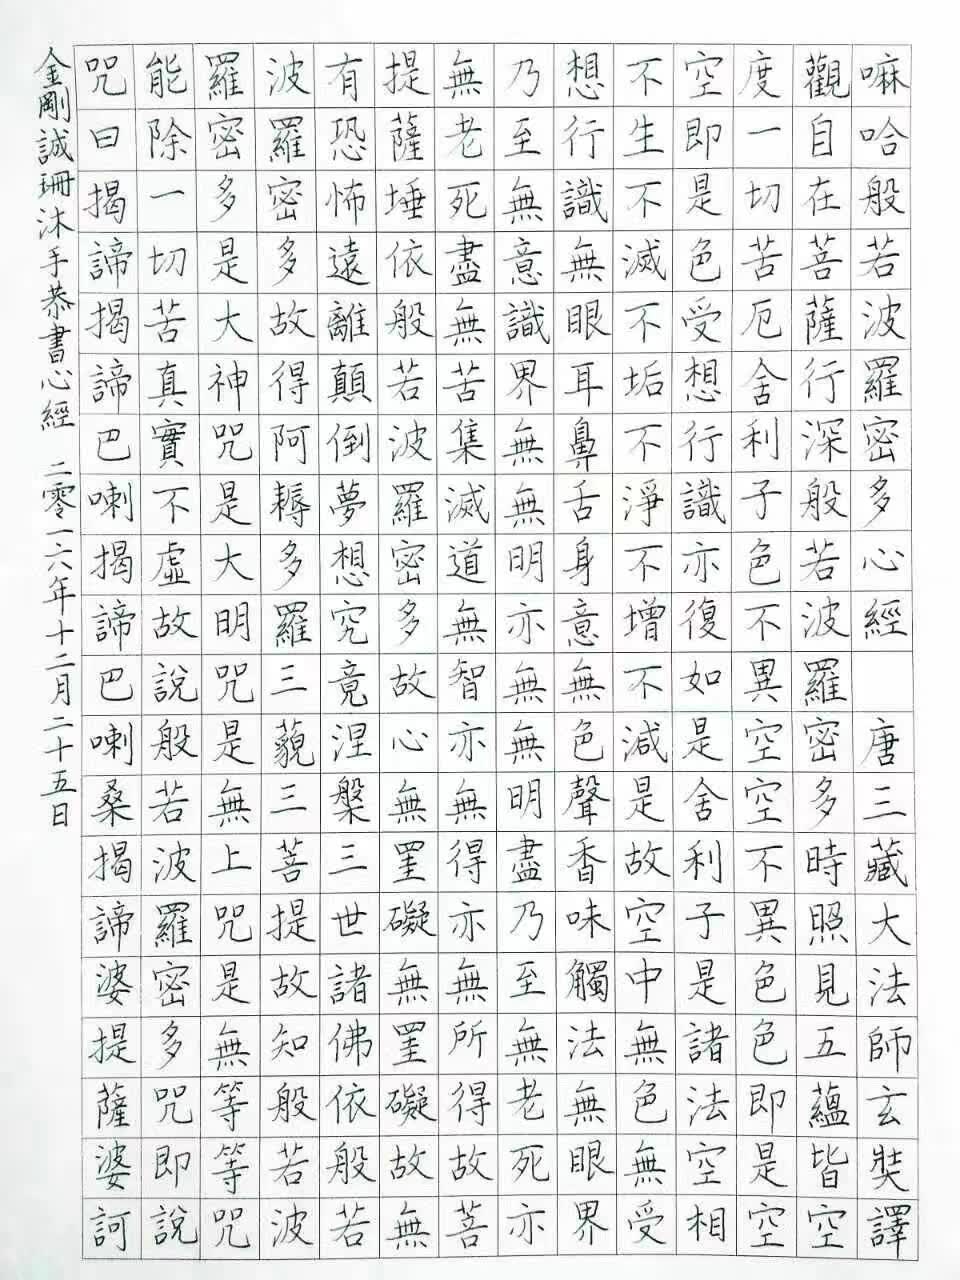 嘛哈般若波羅密多心經 唐三藏大法師玄奘譯
觀自在菩薩行深般若波羅密多時照見五蘊皆空
度一切苦厄舍利子色不異空空不異色色即是空
空即是色受想行識亦復如是舍利子是諸法空相
不生不滅不垢不淨不增不減是故空中無色無受
想行識無眼耳鼻舌身意無色聲香味觸法無眼界
乃至無意識界無無明亦無無明盡乃至無老死亦
無老死盡無苦集滅道無智亦無得亦無所得故菩
提薩埵依般若波羅密多故心無罣礙無罣礙故無
有恐怖遠離顛倒夢想究竟涅槃三世諸佛依般若
波羅密多故得阿耨多羅三藐三菩提故知般若波
羅密多是大神咒是大明咒是無上咒是無等等咒
能除一切苦真實不虛故說般若波羅密多咒即說
咒曰揭諦揭諦巴喇揭諦巴喇桑揭諦婆提薩婆訶
金剛誠珊沐手恭書心經 二零一六年十二月二十五日